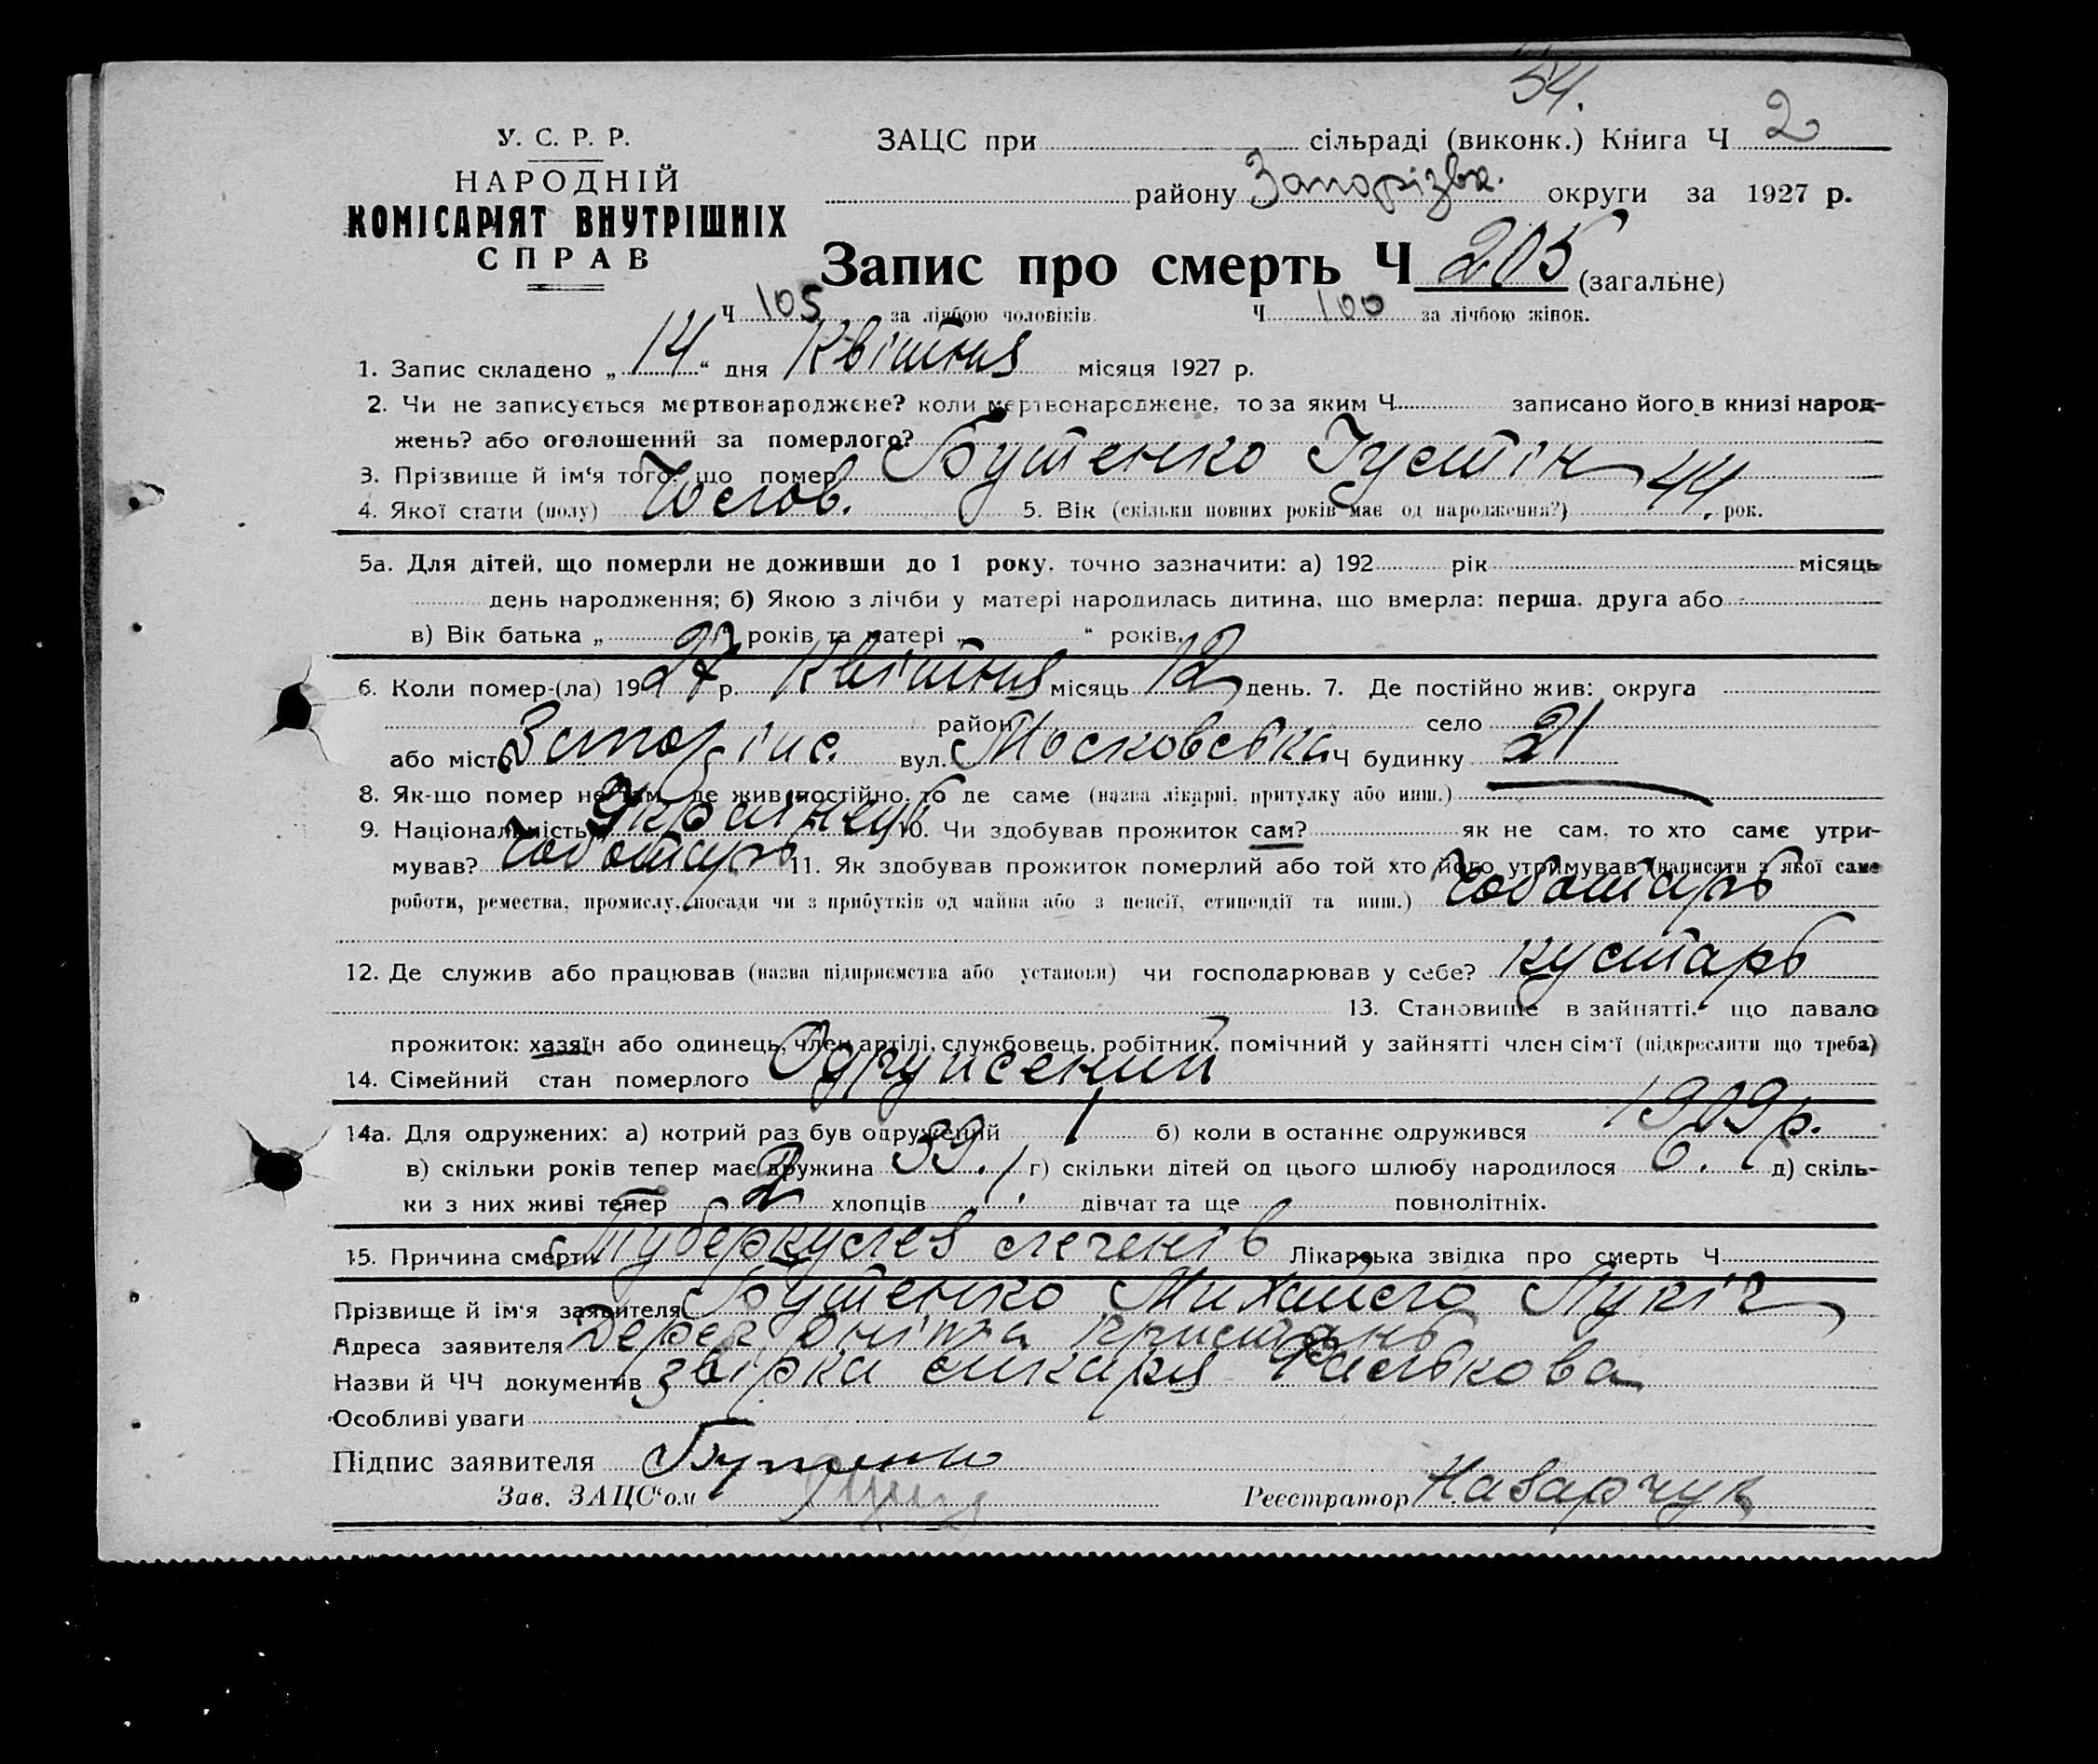 54.
У. С. Р. Р.
НАРОДНІЙ
КОМІСАРІЯТ ВНУТРІШНІХ
СПРАВ
ЗАЦС при сільраді (виконк.) Книга Ч 2
району Запорізьк. округи за 1927 р.
Запис про смерть Ч 205 (загальне)
Ч 105 за лічбою чоловіків Ч 100 за лічбою жінок.
1. Запис складено „ 14 “ дня Квітня місяця 1927 р.
2. Чи не записується мертвонароджене? коли мертвонароджене, то за яким Ч записано його в книзі народ-
жень? або оголошений за померлого?
3. Прізвище й ім‘я того, що помер Бутенко Іустін
4. Якої стати (полу) Чолов. 5. Вік (скільки повних років має од народження?) 44 рок.
5а. Для дітей, що померли не доживши до 1 року, точно зазначити: а) 192 рік місяць
день народження; б) Якою з лічби у матері народилась дитина, що вмерла: перша, друга або
в) Вік батька „ років та матері „ “ років.
6. Коли помер-(ла) 1927 р. Квітня місяць 12 день. 7. Де постійно жив: округа
район село
або місто вул. Московська Ч будинку 21
8. Як-що помер не там, де жив постійно, то де саме (назва лікарні, притулку або инш.)
9. Національність 10. Чи здобував прожиток сам? як не сам, то хто саме утри-
мував? Чоботарь 11. Як здобував прожиток померлий або той хто його утримував (написати з якої саме
роботи, ремества, промислу, посади чи з прибутків од майна або з пенсії, стипендії та инш.) Чоботарь
12. Де служив або працював (назва підприємства або установи) чи господарював у себе? кустарь
13. Становище в зайнятті, що давало
прожиток: хазяїн або одинець, член артілі, службовець, робітник, помічний у зайнятті член сім‘ї (підкреслити що треба)
14. Сімейний стан померлого Одружений
14а. Для одружених: а) котрий раз був одружений 1 б) коли в останнє одружився 1909 р.
в) скільки років тепер має дружина 39. г) скільки дітей од цього шлюбу народилося 6. д) скіль-
ки з них живі тепер 2 хлопців 1. дівчат та ще повнолітніх.
15. Причина смерти Туберкулез легенів Лікарська звідка про смерть Ч
Прізвище й ім‘я заявителя Бутенко Михайло
Адреса заявителя
Назви й ЧЧ документів лікаря
Особливі уваги
Підпис заявителя Бутенко
Зав. ЗАЦС‘ом Реєстратор Назарчук